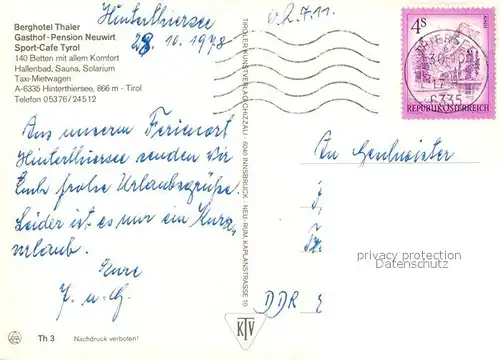 Berghotel Thaler
Gasthof-Pension Neuwirt
Sport-Cafe Tyrol
140 Betten mit allem Komfort
Hallenbad, Sauna, Solarium
Taxi-Mietwagen
A-6335 Hinterthiersee, 866 m - Tirol
Telefon 05376/24512
Hinterthiersee
28.10.1978
Aus unserem Ferienort
Hinterthiersee senden wir
Euch frohe Urlaubsgrüße.
Leider ist es nur ein Kurz-
urlaub.
Eure
J. u. G.
Th 3
Nachdruck verboten!
TIROLER KUNSTVERLAG CHIZZALI · 6040 INNSBRUCK · NEU-RUM, KAPLANSTRASSE 10
KTV
4S
6335
REPUBLIK ÖSTERREICH
An Geschwister
DDR
privacy protection
Datenschutz